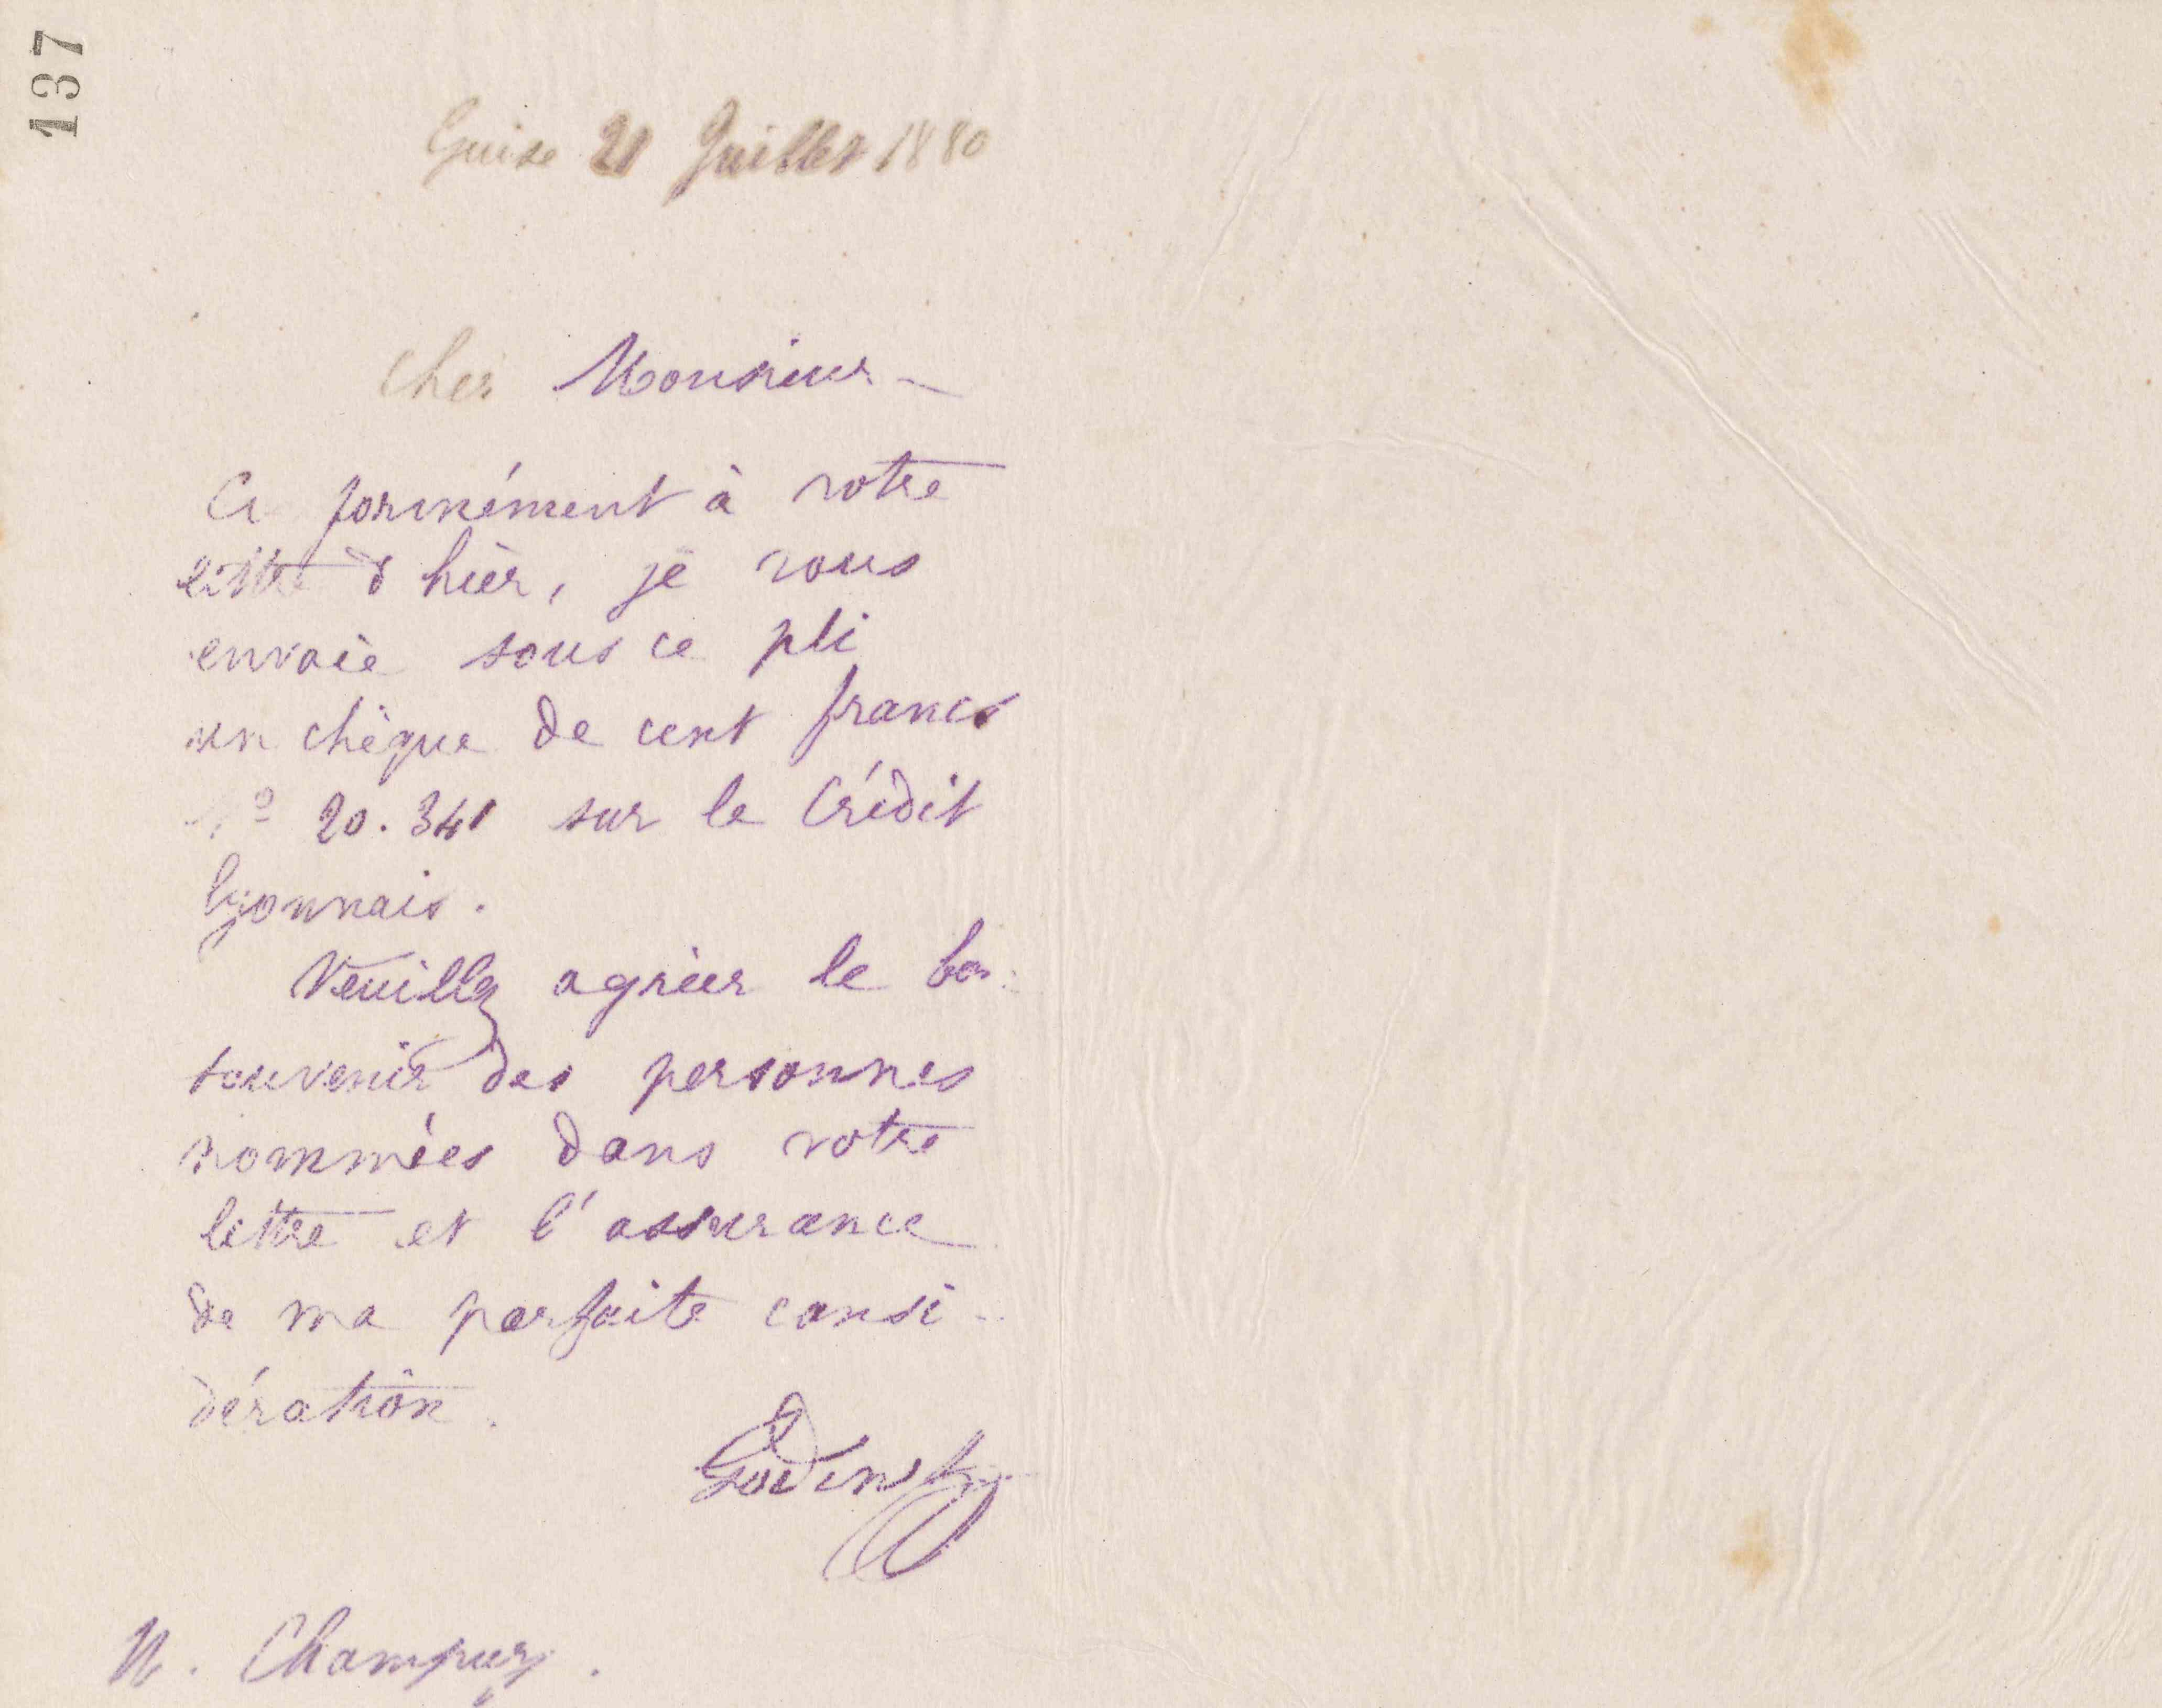 137
Guise 21 Juillet 1880
Cher Monsieur
formément à votre
lettre d'hier, je vous
envoie sous ce pli
un chèque de cent francs
No 20.341 sur le Crédit
lyonnais.
Veuillez agréer le bon
souvenir des personnes
nommées dans votre
lettre et l'assurance
de ma parfaite consi-
dération.
Godin
M. Champury.